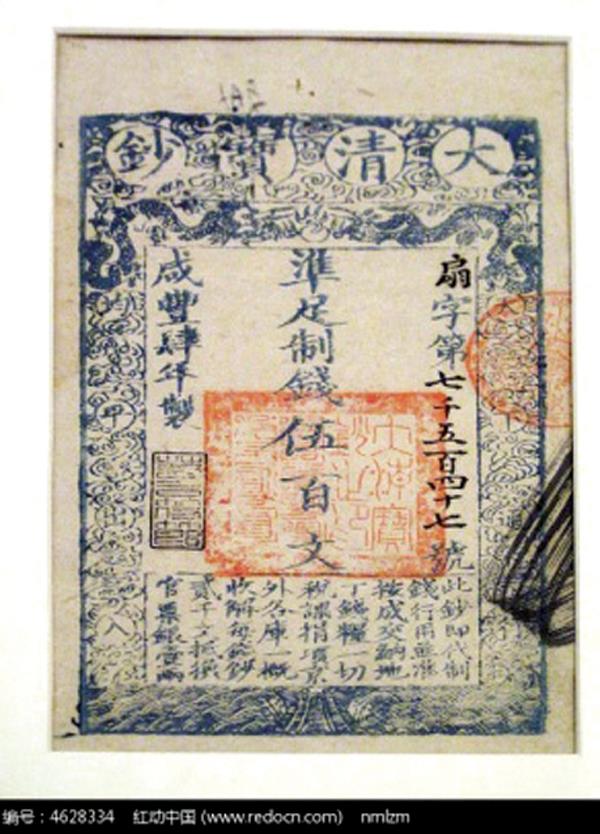 大清寶鈔
扇字第七千五百四十七號
準足制錢伍百文
咸豐肆年製
此鈔即代制
錢行用並准
按成交納地
丁錢糧一切
稅課捐項京
外各庫一概
收解每錢鈔
貳千文抵換
官票銀壹兩
编号：4628334 红动中国 (www.redocn.com) nmlzm